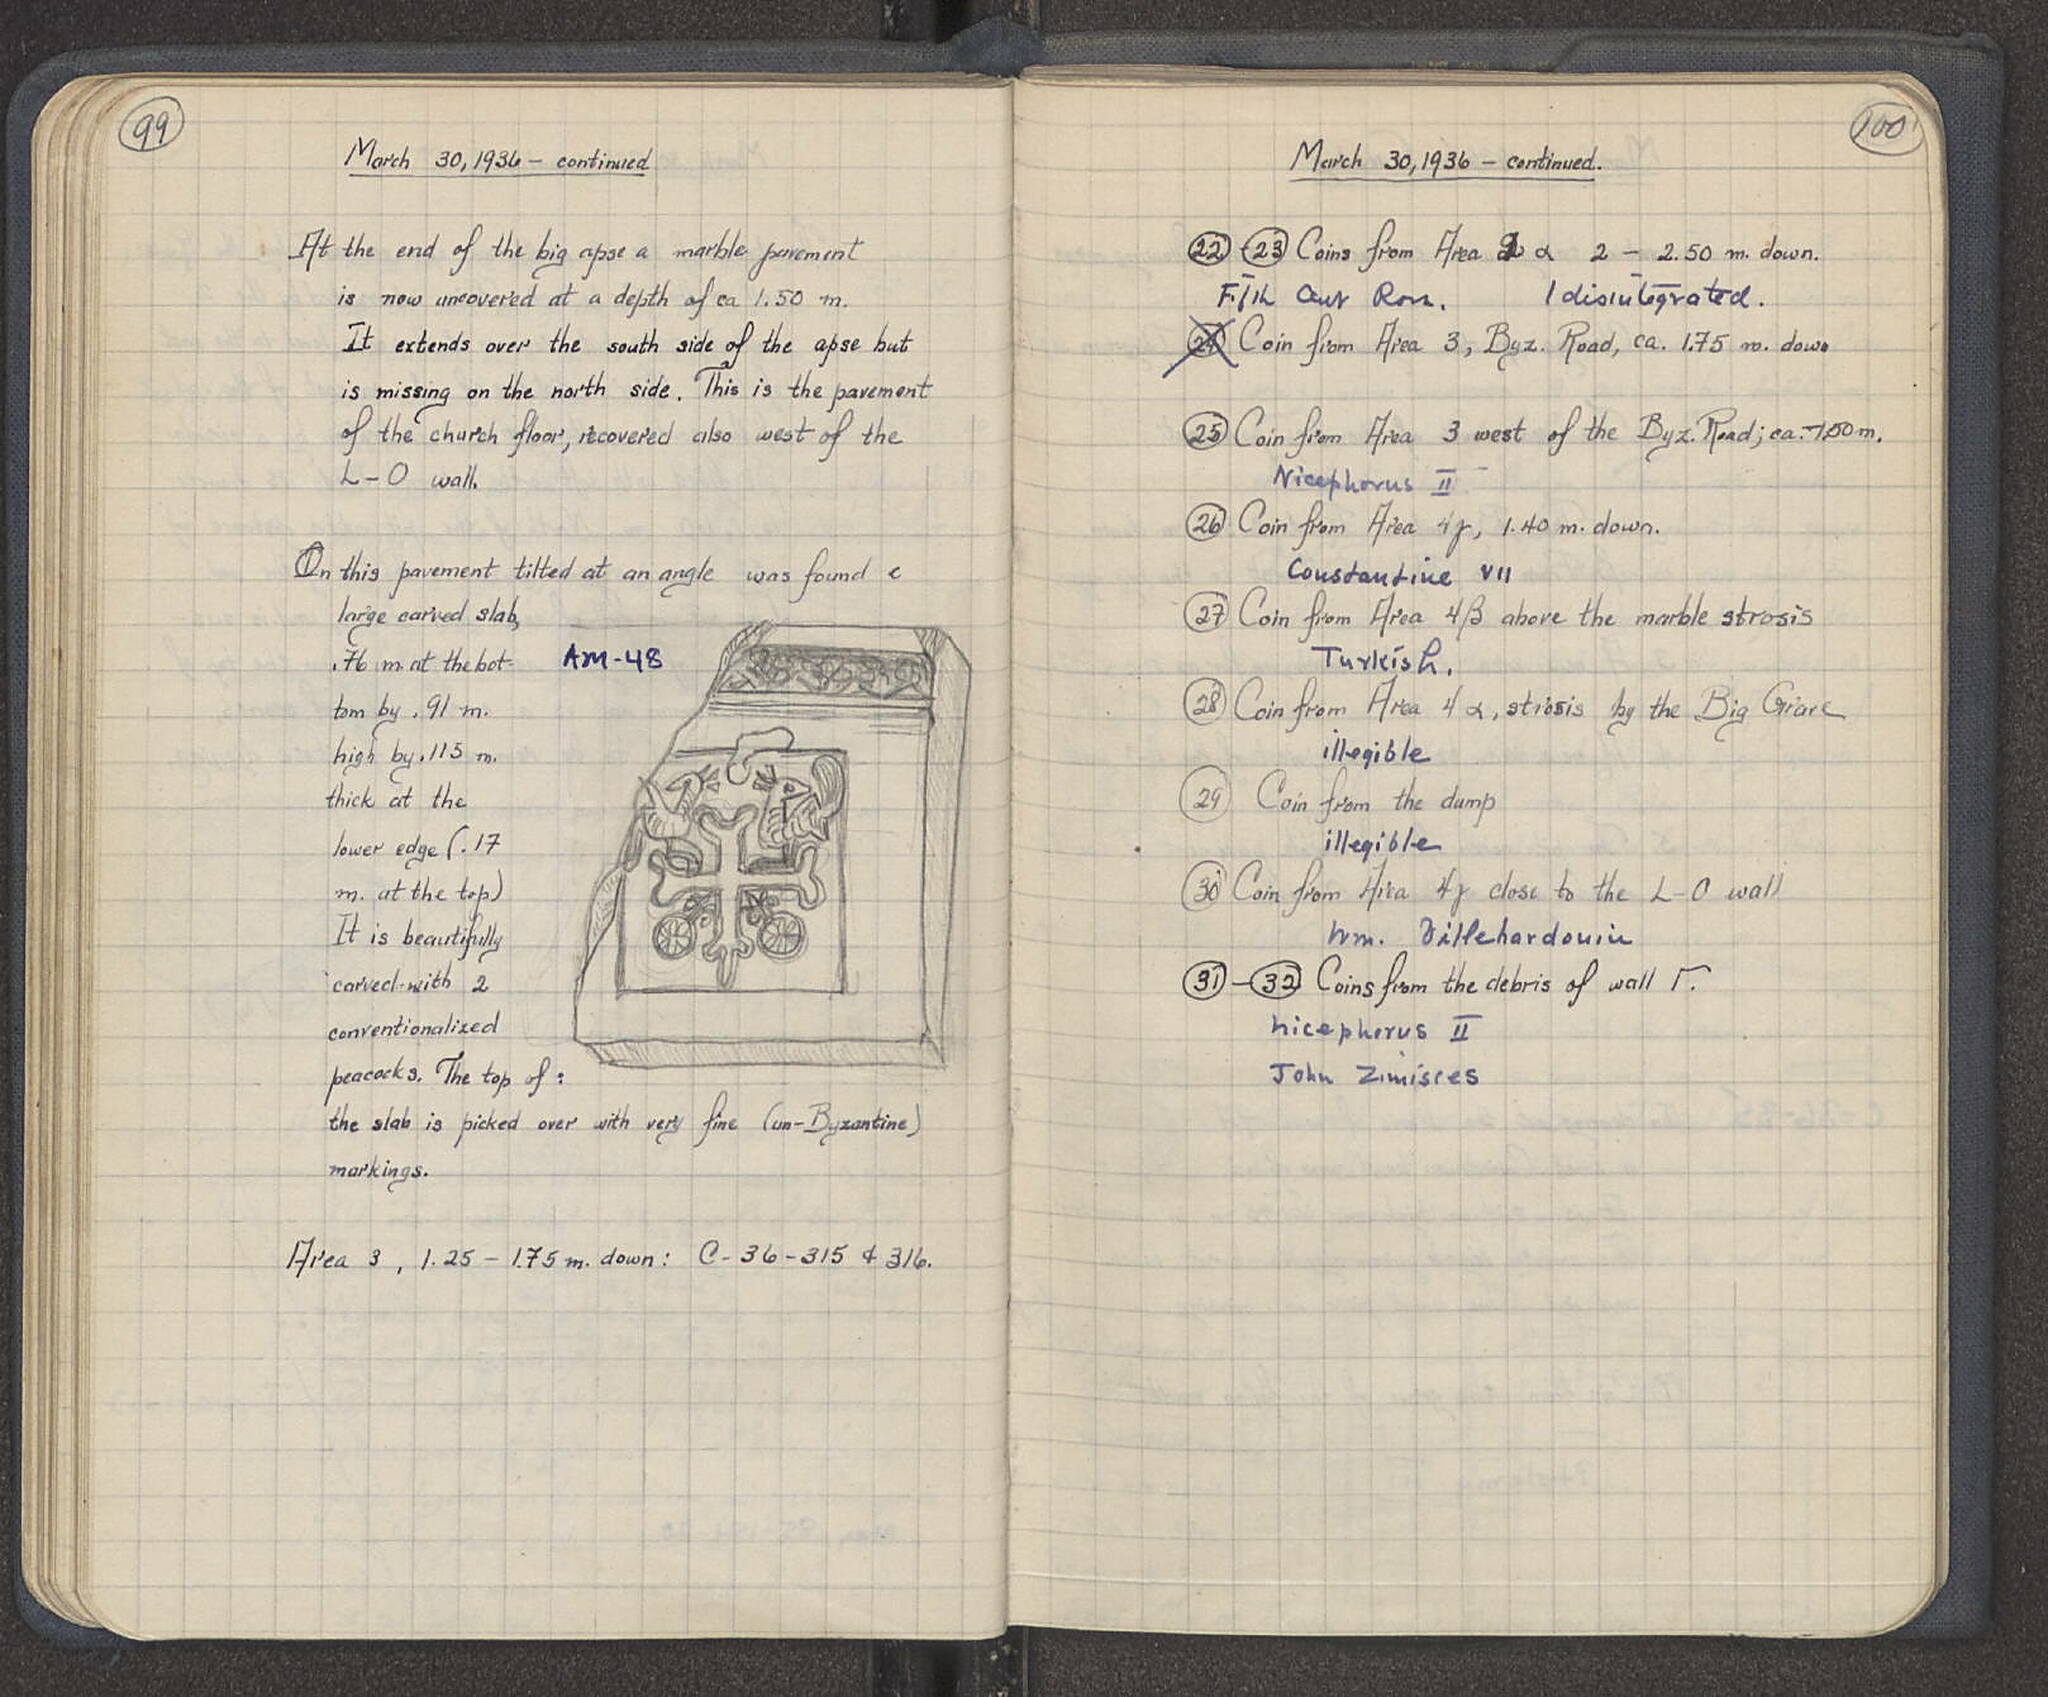 99
March 30, 1936 – continued
At the end of the big apse a marble pavement
is now uncovered at a depth of ca 1.50 m.
It extends over the south side of the apse but
is missing on the north side. This is the pavement
of the church floor, recovered also west of the
L–O wall.
On this pavement tilted at an angle was found a
large carved slab,
.76 m. at the bot-
tom by .91 m.
high by .115 m.
thick at the
lower edge (.17
m. at the top)
It is beautifully
carved with 2
conventionalized
peacocks. The top of :
the slab is picked over with very fine (un-Byzantine)
markings.
AM-48
Area 3, 1.25 – 1.75 m. down: C-36-315 & 316.
100
March 30, 1936 – continued.
22 – 23 Coins from Area 2 α 2 – 2.50 m. down.
Fifth Cent Rom. 1 disintegrated.
24 Coin from Area 3, Byz. Road, ca. 1.75 m. down
25 Coin from Area 3 west of the Byz. Road; ca. –1.50 m.
Nicephorus II
26 Coin from Area 4γ, 1.40 m. down.
Constantine VII
27 Coin from Area 4β above the marble strosis
Turkish.
28 Coin from Area 4 α, strosis by the Big Grave
illegible
29 Coin from the dump
illegible
30 Coin from Area 4γ close to the L–O wall
Wm. Villehardouin
31 – 32 Coins from the debris of wall Γ.
Nicephorus II
John Zimisces